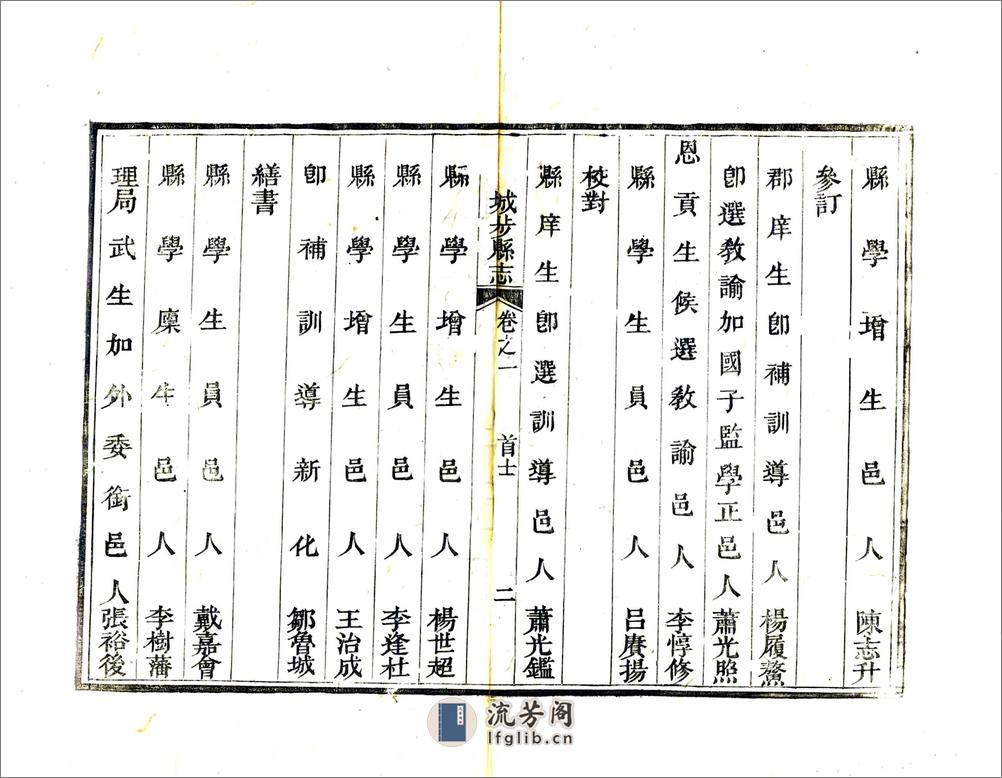 縣學增生邑人陳志升
參訂
郡庠生卽補訓導邑人楊履鰲
卽選敎諭加國子監學正邑人蕭光照
恩貢生候選敎諭邑人李惇修
縣學生員邑人呂賡揚
校對
縣庠生卽選訓導邑人蕭光鑑
城步縣志 卷之一 首士 二
縣學增生邑人楊世超
縣學生員邑人李逢杜
縣學增生邑人王治成
卽補訓導新化鄒魯城
繕書
縣學生員邑人戴嘉會
縣學廩生邑人李樹藩
理局武生加外委銜邑人張裕後
流芳阁
lfglib.cn